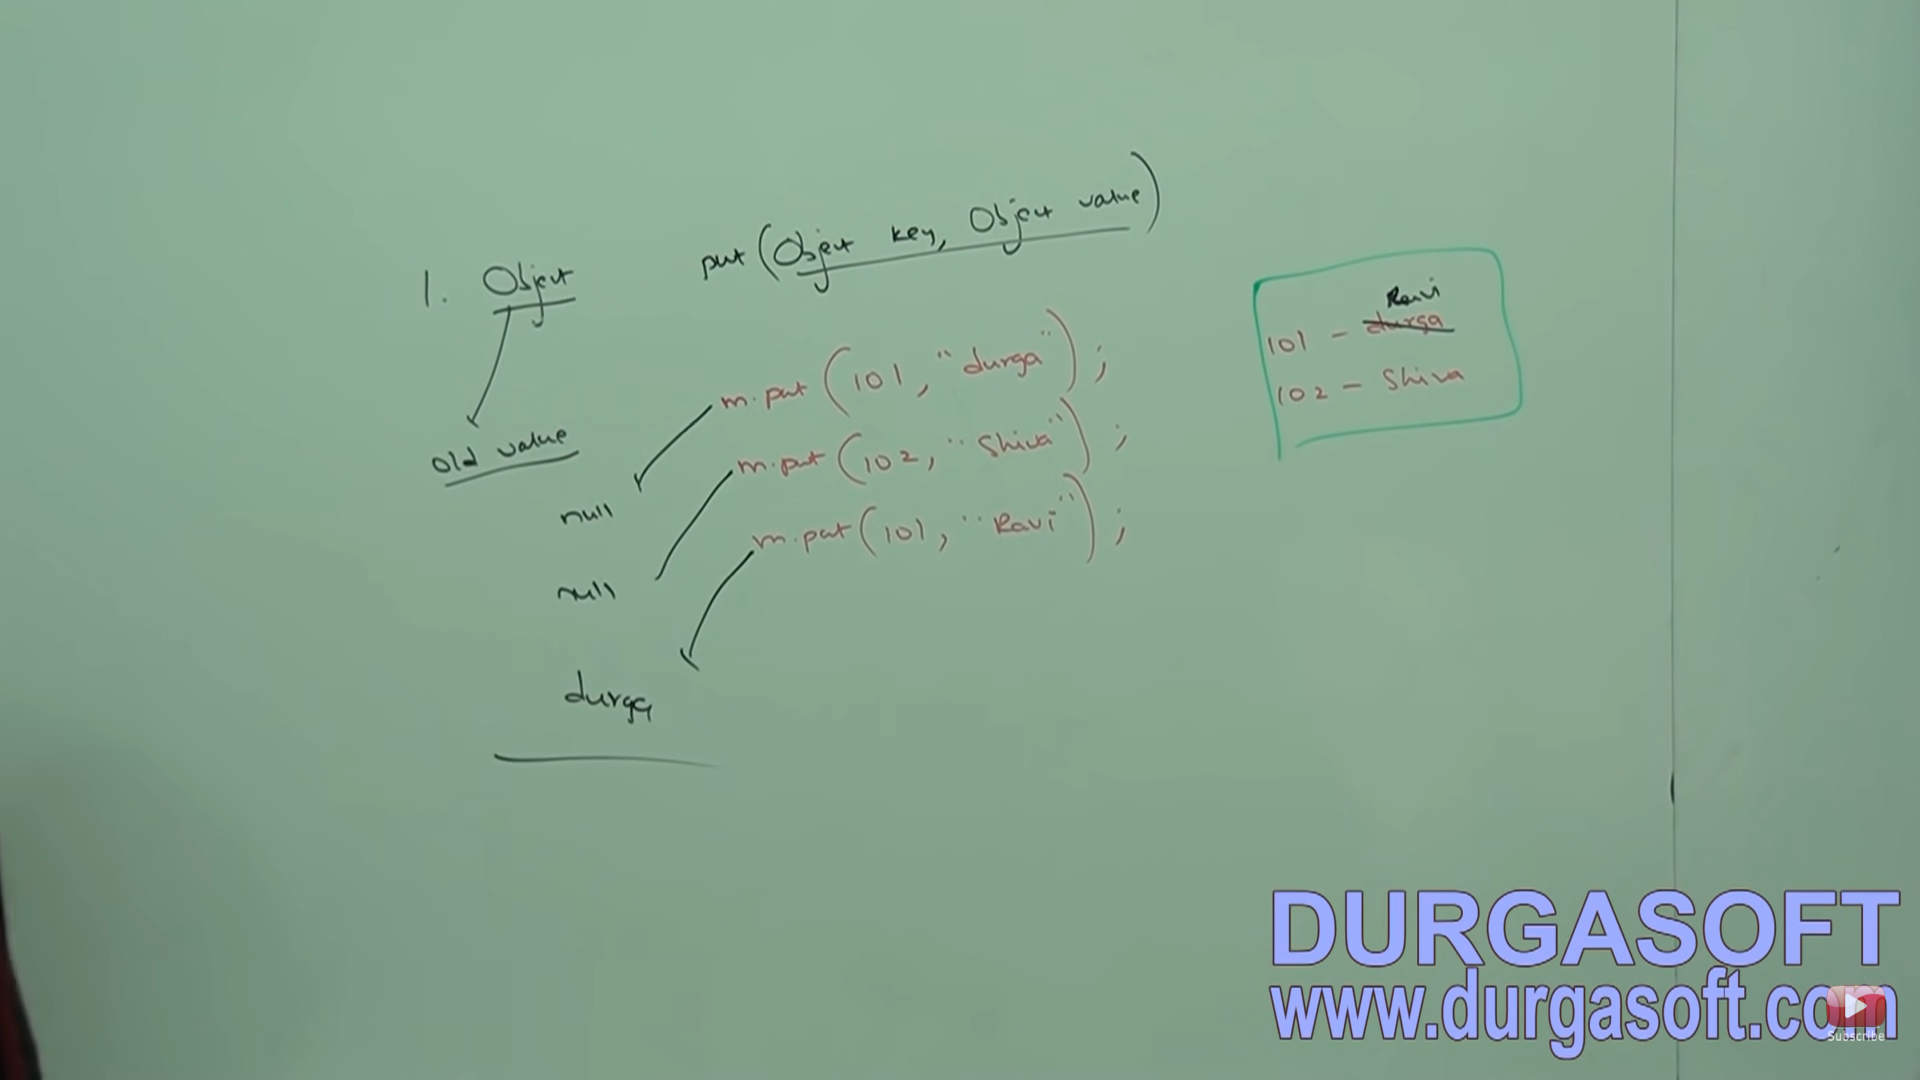 1. Object put (Object key, Object value)
old value
m.put (101, "durga");
m.put (102, "Shiva");
m.put (101, "Ravi");
null
null
durga
Ravi
101 - durga
102 - Shiva
DURGASOFT
www.durgasoft.com
Subscribe